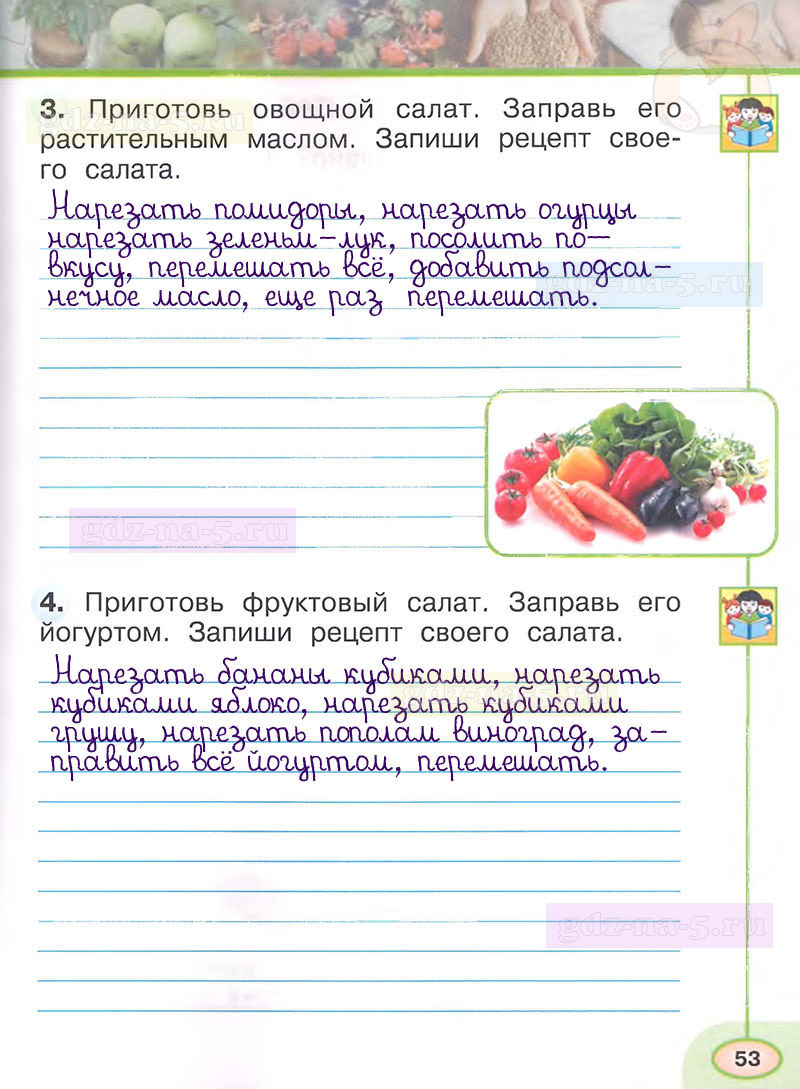 3. Приготовь овощной салат. Заправь его
растительным маслом. Запиши рецепт свое-
го салата.
Нарезать помидоры, нарезать огурцы
нарезать зеленым-лук, посолить по-
вкусу, перемешать всё, добавить подсол-
нечное масло, еще раз перемешать.
4. Приготовь фруктовый салат. Заправь его
йогуртом. Запиши рецепт своего салата.
Нарезать бананы кубиками, нарезать
кубиками яблоко, нарезать кубиками
грушу, нарезать пополам виноград, за-
править всё йогуртом, перемешать.
53
gdz-na-5.ru
gdz-na-5.ru
gdz-na-5.ru
gdz-na-5.ru
gdz-na-5.ru